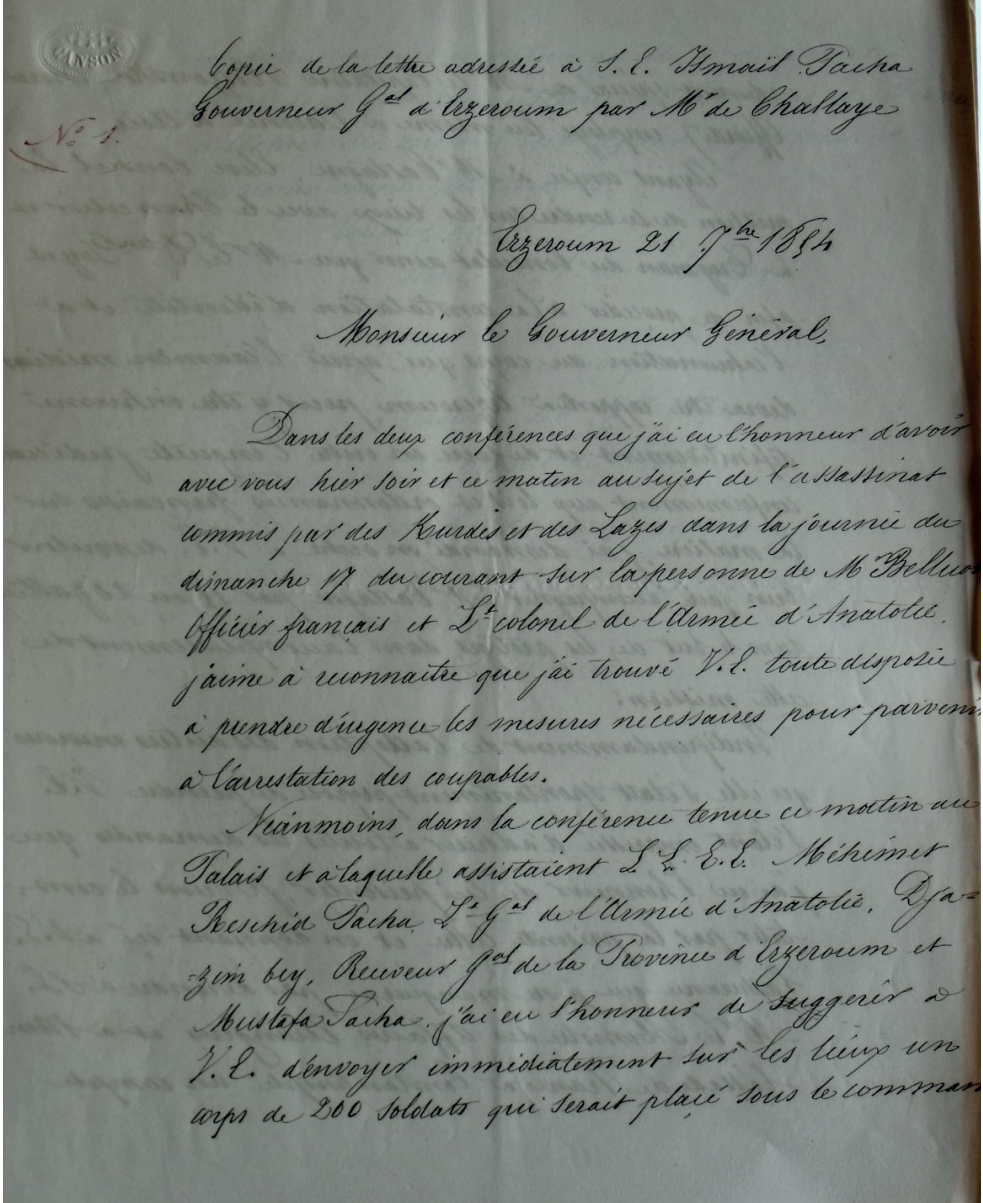 CANSON
Copie de la lettre adressée à S. E. Ismaïl Pacha
Gouverneur Gal d'Erzeroum par Mr de Challaye
No 1.
Erzeroum 21 7bre 1854
Monsieur le Gouverneur Général,
Dans les deux conférences que j'ai eu l'honneur d'avoir
avec vous hier soir et ce matin au sujet de l'assassinat
commis par des Kurdes et des Lazes dans la journée du
dimanche 17 du courant sur la personne de Mr
Officier français et Lt colonel de l'Armée d'Anatolie,
j'aime à reconnaitre que j'ai trouvé V. E. toute disposée
à prendre d'urgence les mesures nécessaires pour parvenir
à l'arrestation des coupables.
Néanmoins, dans la conférence tenue ce matin au
Palais et à laquelle assistaient L L. E. E. Méhémet
Reschid Pacha, Lt Gal de l'Armée d'Anatolie, Dja=
=zim bey, Receveur Gal de la Province d'Erzeroum et
Mustafa Pacha, j'ai eu l'honneur de suggérer à
V. E. d'envoyer immédiatement sur les lieux un
corps de 200 soldats qui serait placé sous le comman